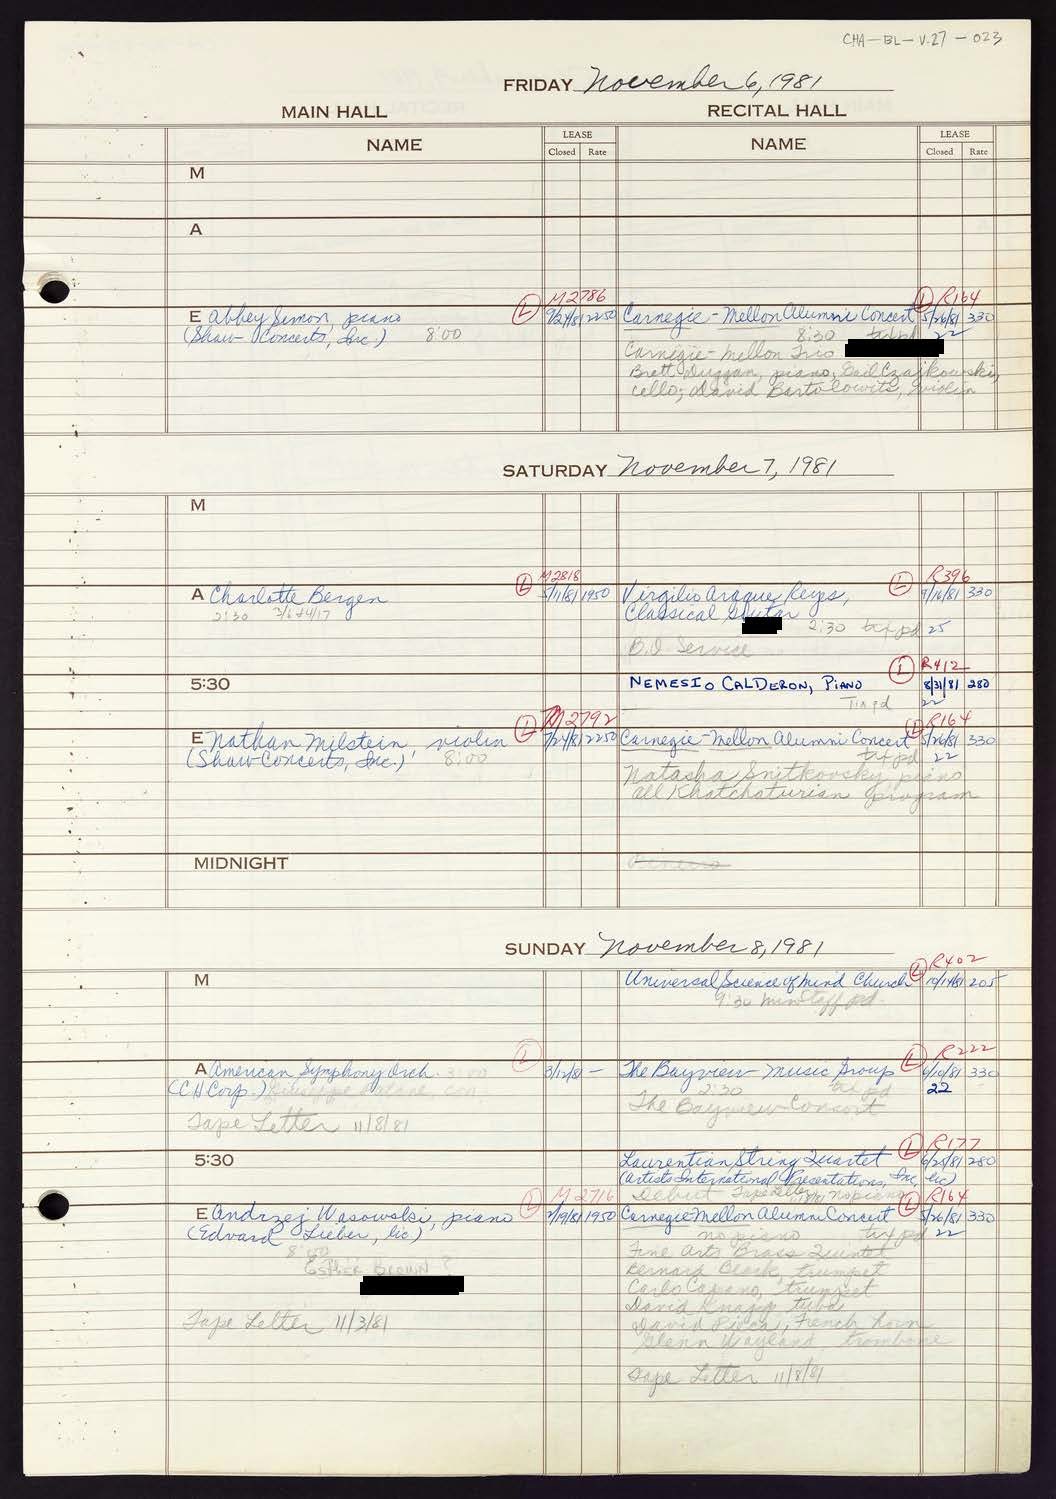 CHA-BL-V.27-023
FRIDAY November 6, 1981
MAIN HALL RECITAL HALL
NAME LEASE NAME LEASE
Closed Rate Closed Rate
M
A
M2786 R164
E Abbey Simon, piano L 2250 Carnegie-Mellon Alumni Concert L 5/26/81 330
(Shaw Concerts, Inc.) 8:00 8:30 txt pd 22
Carnegie-Mellon Trio
Brett Duggan, piano, Gail Czajkowski,
cello; David Bartolowits, violin
SATURDAY November 7, 1981
M
M2818 R396
A Charlotte Bergen L 5/11/81 1950 Virgilio Araque Reyes, L 9/16/81 330
2:30 Classical Guitar
2:30 txt pd 25
B.O. Service
R412
5:30 NEMESIO CALDERON, PIANO L 8/31/81 280
22
M2792 R164
E Nathan Milstein, violin L 2250 Carnegie-Mellon Alumni Concert L 5/26/81 330
(Shaw Concerts, Inc.) 8:00 txt pd 22
Natasha Snitkovsky piano
all Khatchaturian program
MIDNIGHT
SUNDAY November 8, 1981
R402
M Universal Science of Mind Church L 10/14/81 205
9:30
R222
A American Symphony Orch. 3:00 L 3/12/81 - The Bayview Music Group L 330
(CH Corp.) 2:30 txt pd 22
The Bayview Consort
Tape Letter 11/8/81
R177
5:30 Laurentian String Quartet L 6/25/81 280
(Artists International Presentations, Inc., lic)
Debut Tape Letter no piano
M2716 R164
E Andrzej Wasowski, piano L 2/19/81 1950 Carnegie Mellon Alumni Concert L 5/26/81 330
(Edvard Lieber, lic) no piano txt pd 22
8:00 Fine Arts Brass Quintet
ESTHER BROWN? Bernard Black, trumpet
Carlo Capano, trumpet
David Knapp tuba
David, French horn
Glenn Wayland trombone
Tape Letter 11/3/81
Tape Letter 11/8/81